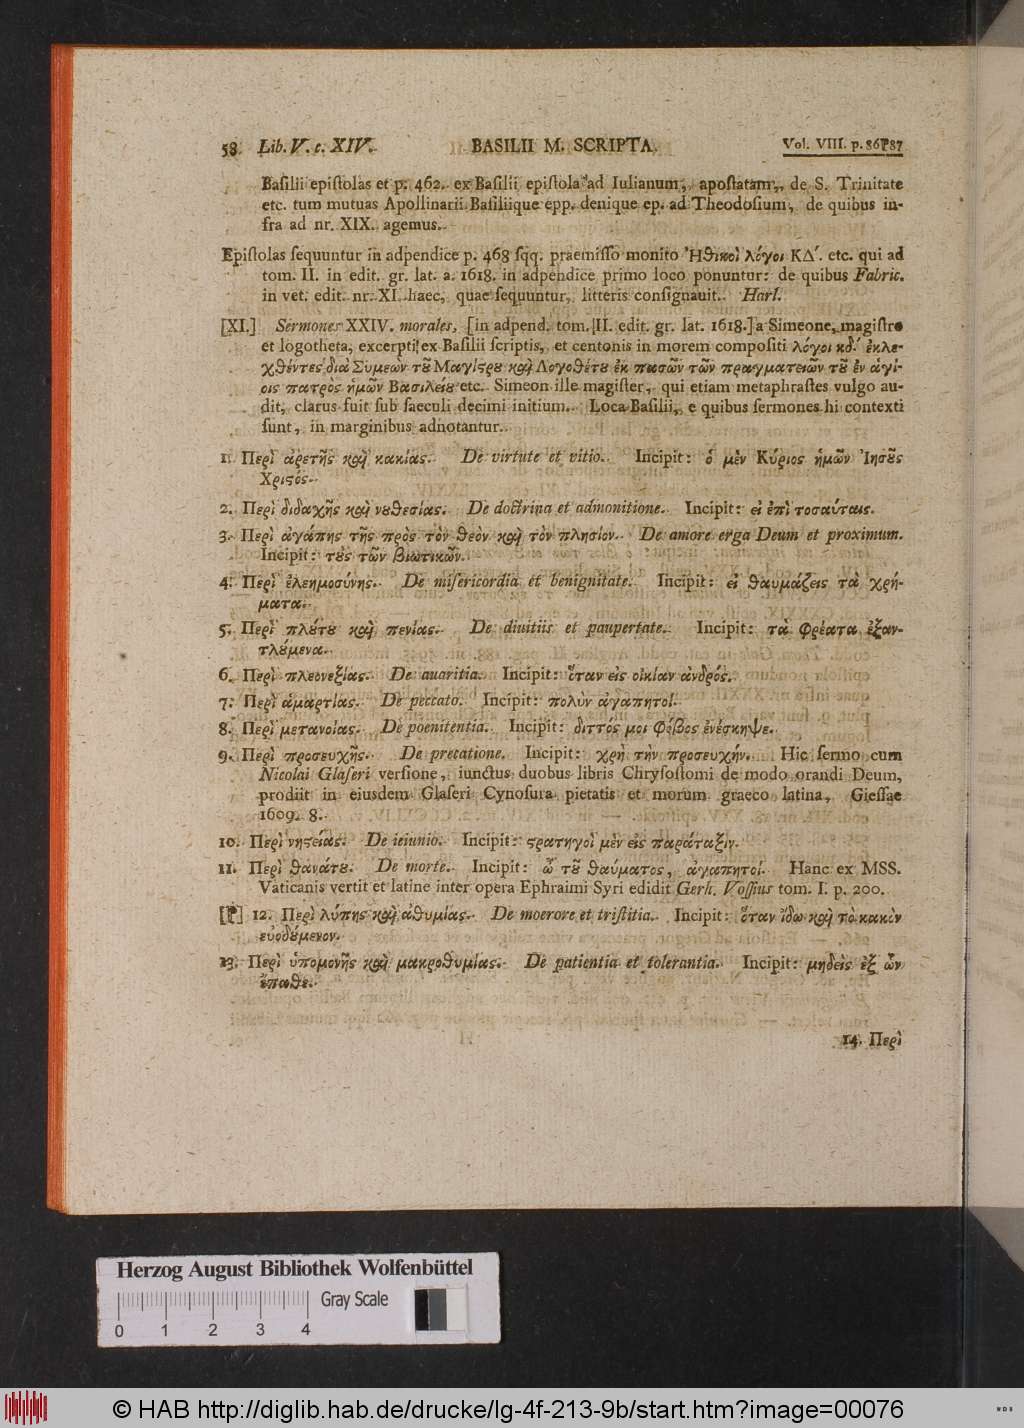 58 Lib. V. c. XIV. BASILII M. SCRIPTA. Vol. VIII. p. 86 87
Basilii epistolas et p. 462. ex Basilii epistola ad Iulianum, apostatam, de S. Trinitate
etc. tum mutuas Apollinarii Basiliique epp. denique ep. ad Theodosium, de quibus in-
fra ad nr. XIX. agemus.
Epistolas sequuntur in adpendice p. 468 sqq. praemisso monito Ἠθικοὶ λόγοι ΚΔ´. etc. qui ad
tom. II. in edit. gr. lat. a. 1618. in adpendice primo loco ponuntur: de quibus Fabric.
in vet. edit. nr. XI. haec, quae sequuntur, litteris consignauit. Harl.
[XI.] Sermones XXIV. morales, [in adpend. tom. II. edit. gr. lat. 1618.] a Simeone, magistro
et logotheta, excerpti ex Basilii scriptis, et centonis in morem compositi λόγοι κδ´. ἐκλε-
χθέντες διὰ Συμεὼν τοῦ Μαγίστρου καὶ Λογοθέτου ἐκ πασῶν τῶν πραγματειῶν τοῦ ἐν ἁγί-
οις πατρὸς ἡμῶν Βασιλείου etc. Simeon ille magister, qui etiam metaphrastes vulgo au-
dit, clarus fuit sub saeculi decimi initium. Loca Basilii, e quibus sermones hi contexti
sunt, in marginibus adnotantur.
1. Περὶ ἀρετῆς καὶ κακίας. De virtute et vitio. Incipit: ὁ μὲν Κύριος ἡμῶν Ἰησοῦς
Χριστός.
2. Περὶ διδαχῆς καὶ νουθεσίας. De doctrina et admonitione. Incipit: εἰ ἐπὶ τοσαύταις.
3. Περὶ ἀγάπης τῆς πρὸς τὸν θεὸν καὶ τὸν πλησίον. De amore erga Deum et proximum.
Incipit: τοὺς τῶν βιωτικῶν.
4. Περὶ ἐλεημοσύνης. De misericordia et benignitate. Incipit: εἰ θαυμάζεις τὰ χρή-
ματα.
5. Περὶ πλούτου καὶ πενίας. De diuitiis et paupertate. Incipit: τὰ φρέατα ἐξαν-
τλούμενα.
6. Περὶ πλεονεξίας. De auaritia. Incipit: ὅταν εἰς οἰκίαν ἀνδρός.
7. Περὶ ἁμαρτίας. De peccato. Incipit: πολὺν ἀγαπητοί.
8. Περὶ μετανοίας. De poenitentia. Incipit: διττός μοι φόβος ἐνέσκηψε.
9. Περὶ προσευχῆς. De precatione. Incipit: χρὴ τὴν προσευχήν. Hic sermo cum
Nicolai Glaseri versione, iunctus duobus libris Chrysostomi de modo orandi Deum,
prodiit in eiusdem Glaseri Cynosura pietatis et morum graeco latina, Giessae
1609. 8.
10. Περὶ νηστείας. De ieiunio. Incipit: στρατηγοὶ μὲν εἰς παράταξιν.
11. Περὶ θανάτου. De morte. Incipit: ὢ τοῦ θαύματος, ἀγαπητοί. Hanc ex MSS.
Vaticanis vertit et latine inter opera Ephraimi Syri edidit Gerh. Vossius tom. I. p. 200.
12. Περὶ λύπης καὶ ἀθυμίας. De moerore et tristitia. Incipit: ὅταν ἴδω καὶ τὸ κακὸν
εὐοδούμενον.
13. Περὶ ὑπομονῆς καὶ μακροθυμίας. De patientia et tolerantia. Incipit: μηδεὶς ἐξ ὧν
ἔπαθε.
14. Περὶ
Herzog August Bibliothek Wolfenbüttel
Gray Scale
0 1 2 3 4
© HAB http://diglib.hab.de/drucke/lg-4f-213-9b/start.htm?image=00076